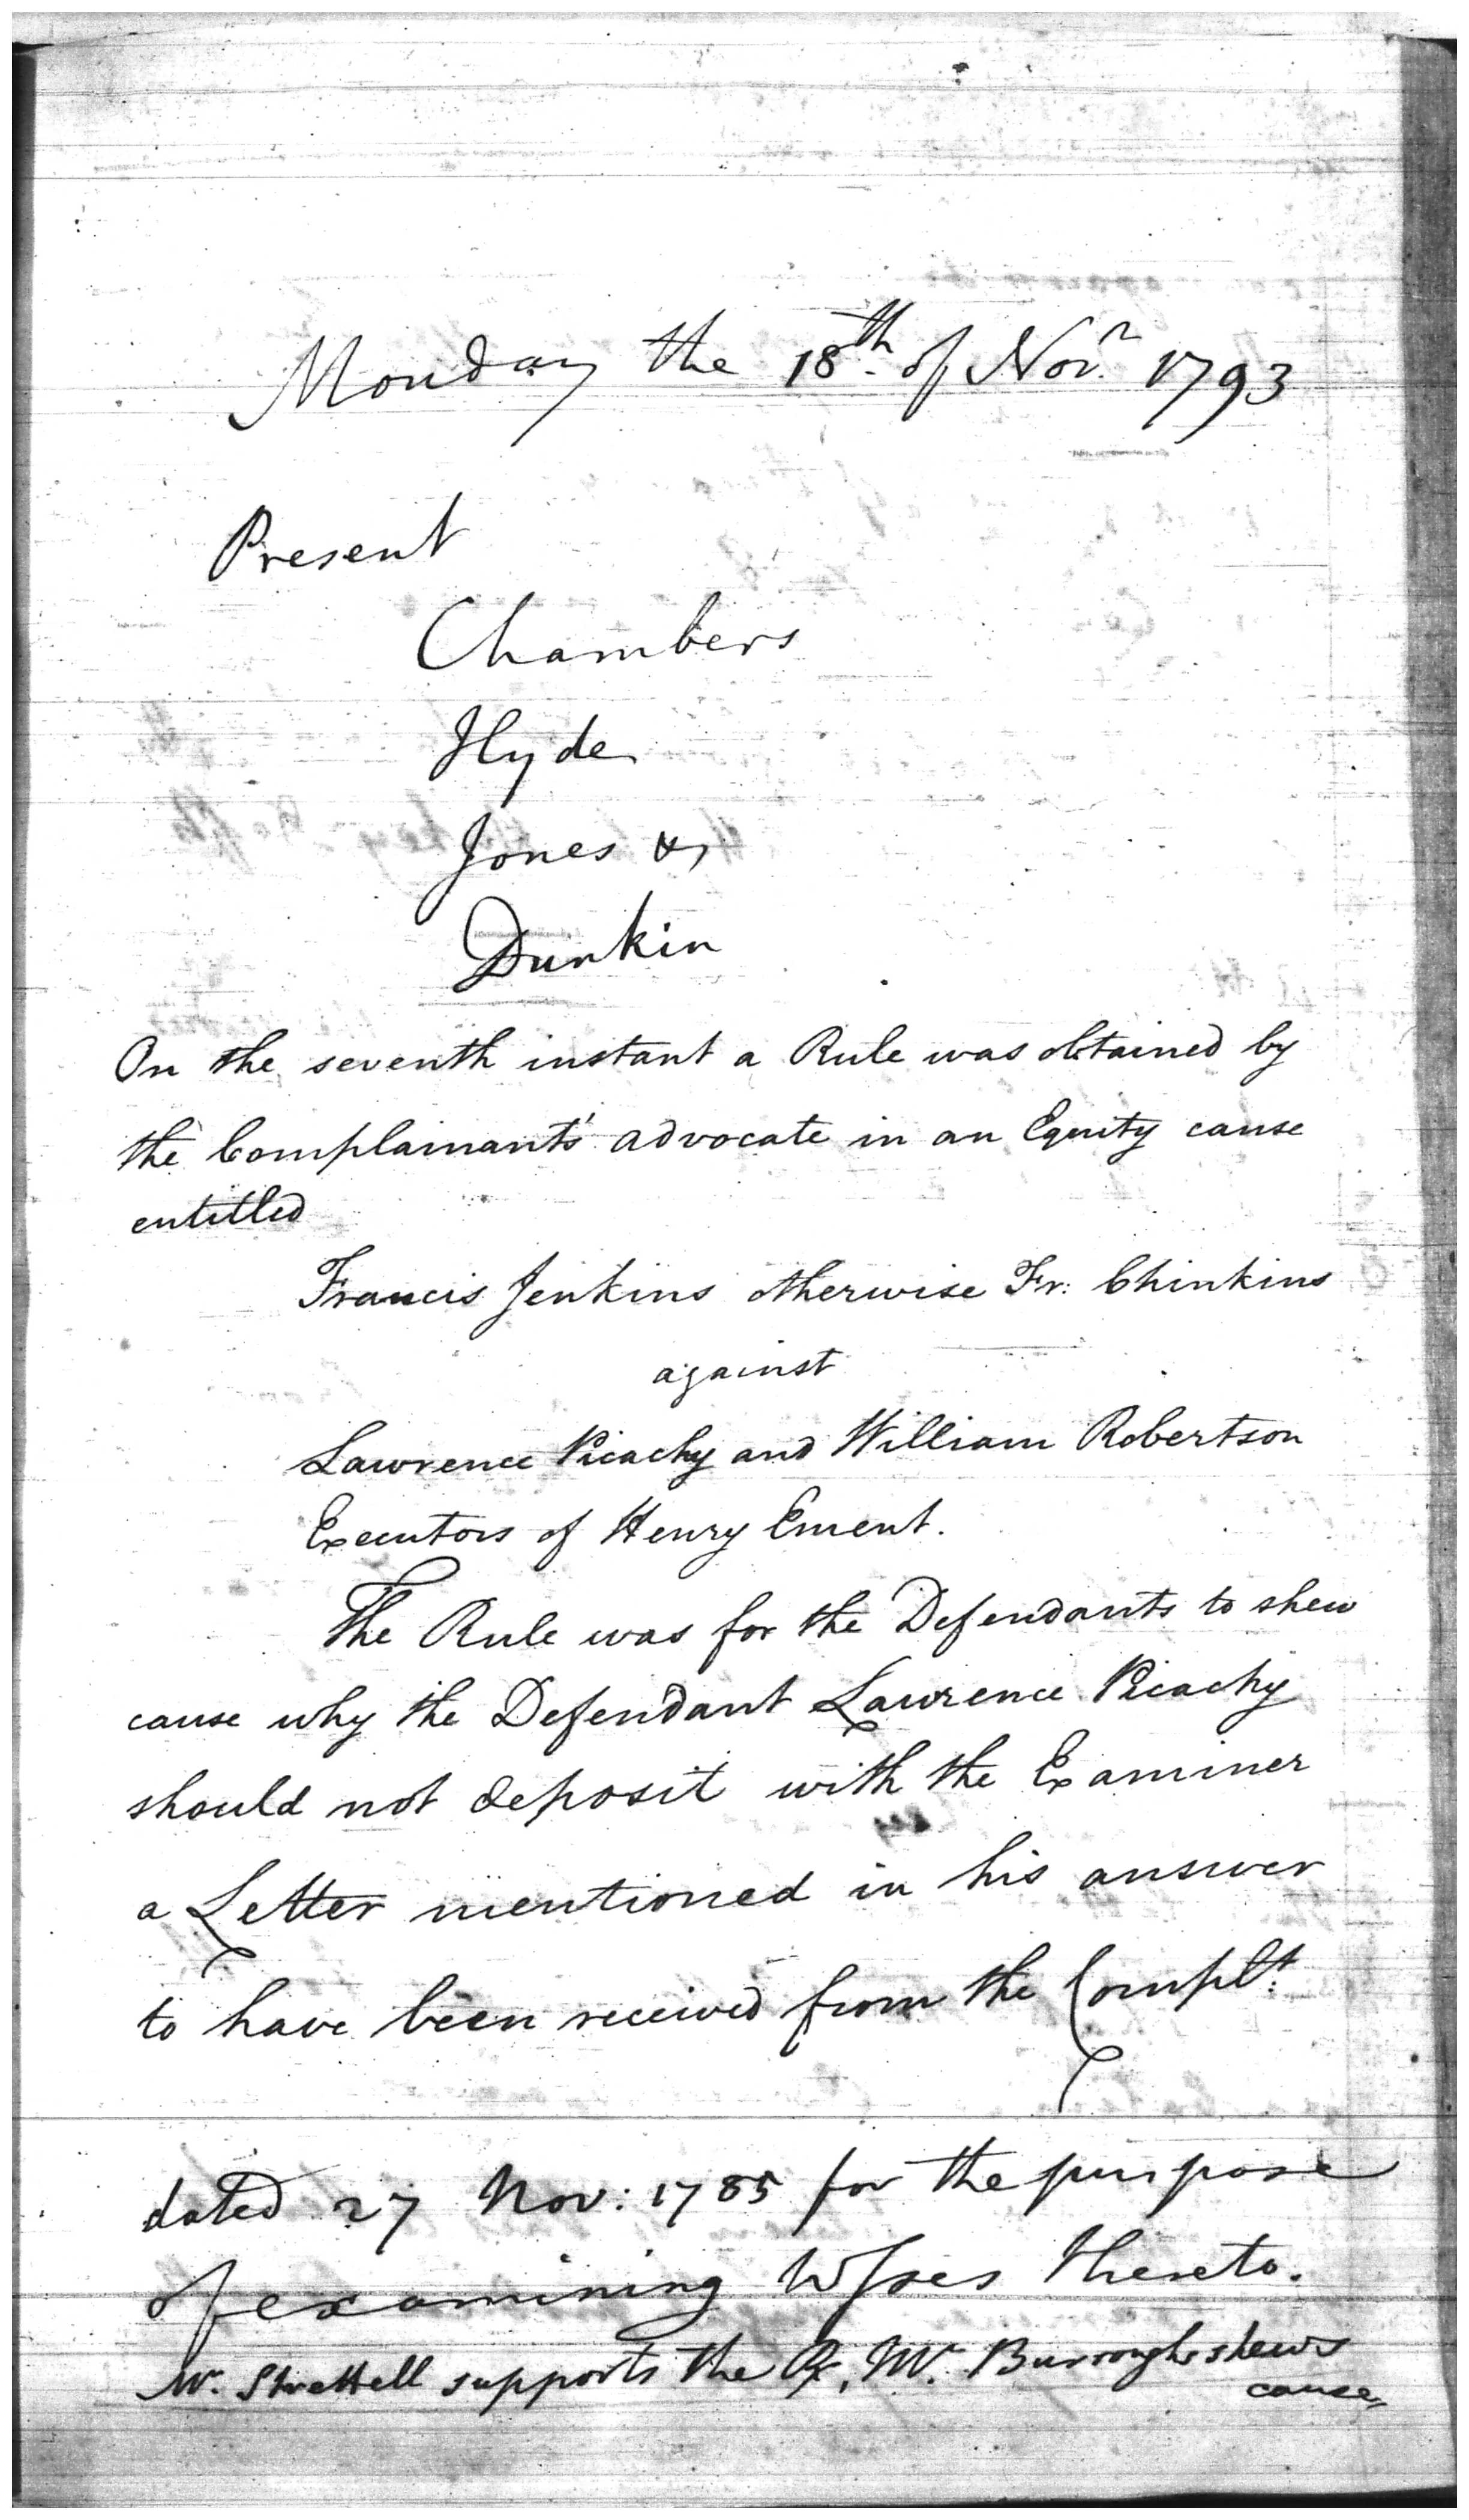 Monday the 18th. of Novr. 1793
Present
Chambers
Hyde
Jones &
Dunkin
On the seventh instant a Rule was obtained by
the Complainants' advocate in an Equity cause
entitled
Francis Jenkins otherwise Fr: Chinkins
against
Lawrence Picachy and William Robertson
Executors of Henry Ement.
The Rule was for the Defendants to shew
cause why the Defendant Lawrence Picachy
should not deposit with the Examiner
a Letter mentioned in his answer
to have been received from the Complt:
dated 27 Nov: 1785 for the purpose
of examining Wsses thereto.
Mr. Strettell supports the R, Mr. Burroughs shews
cause,